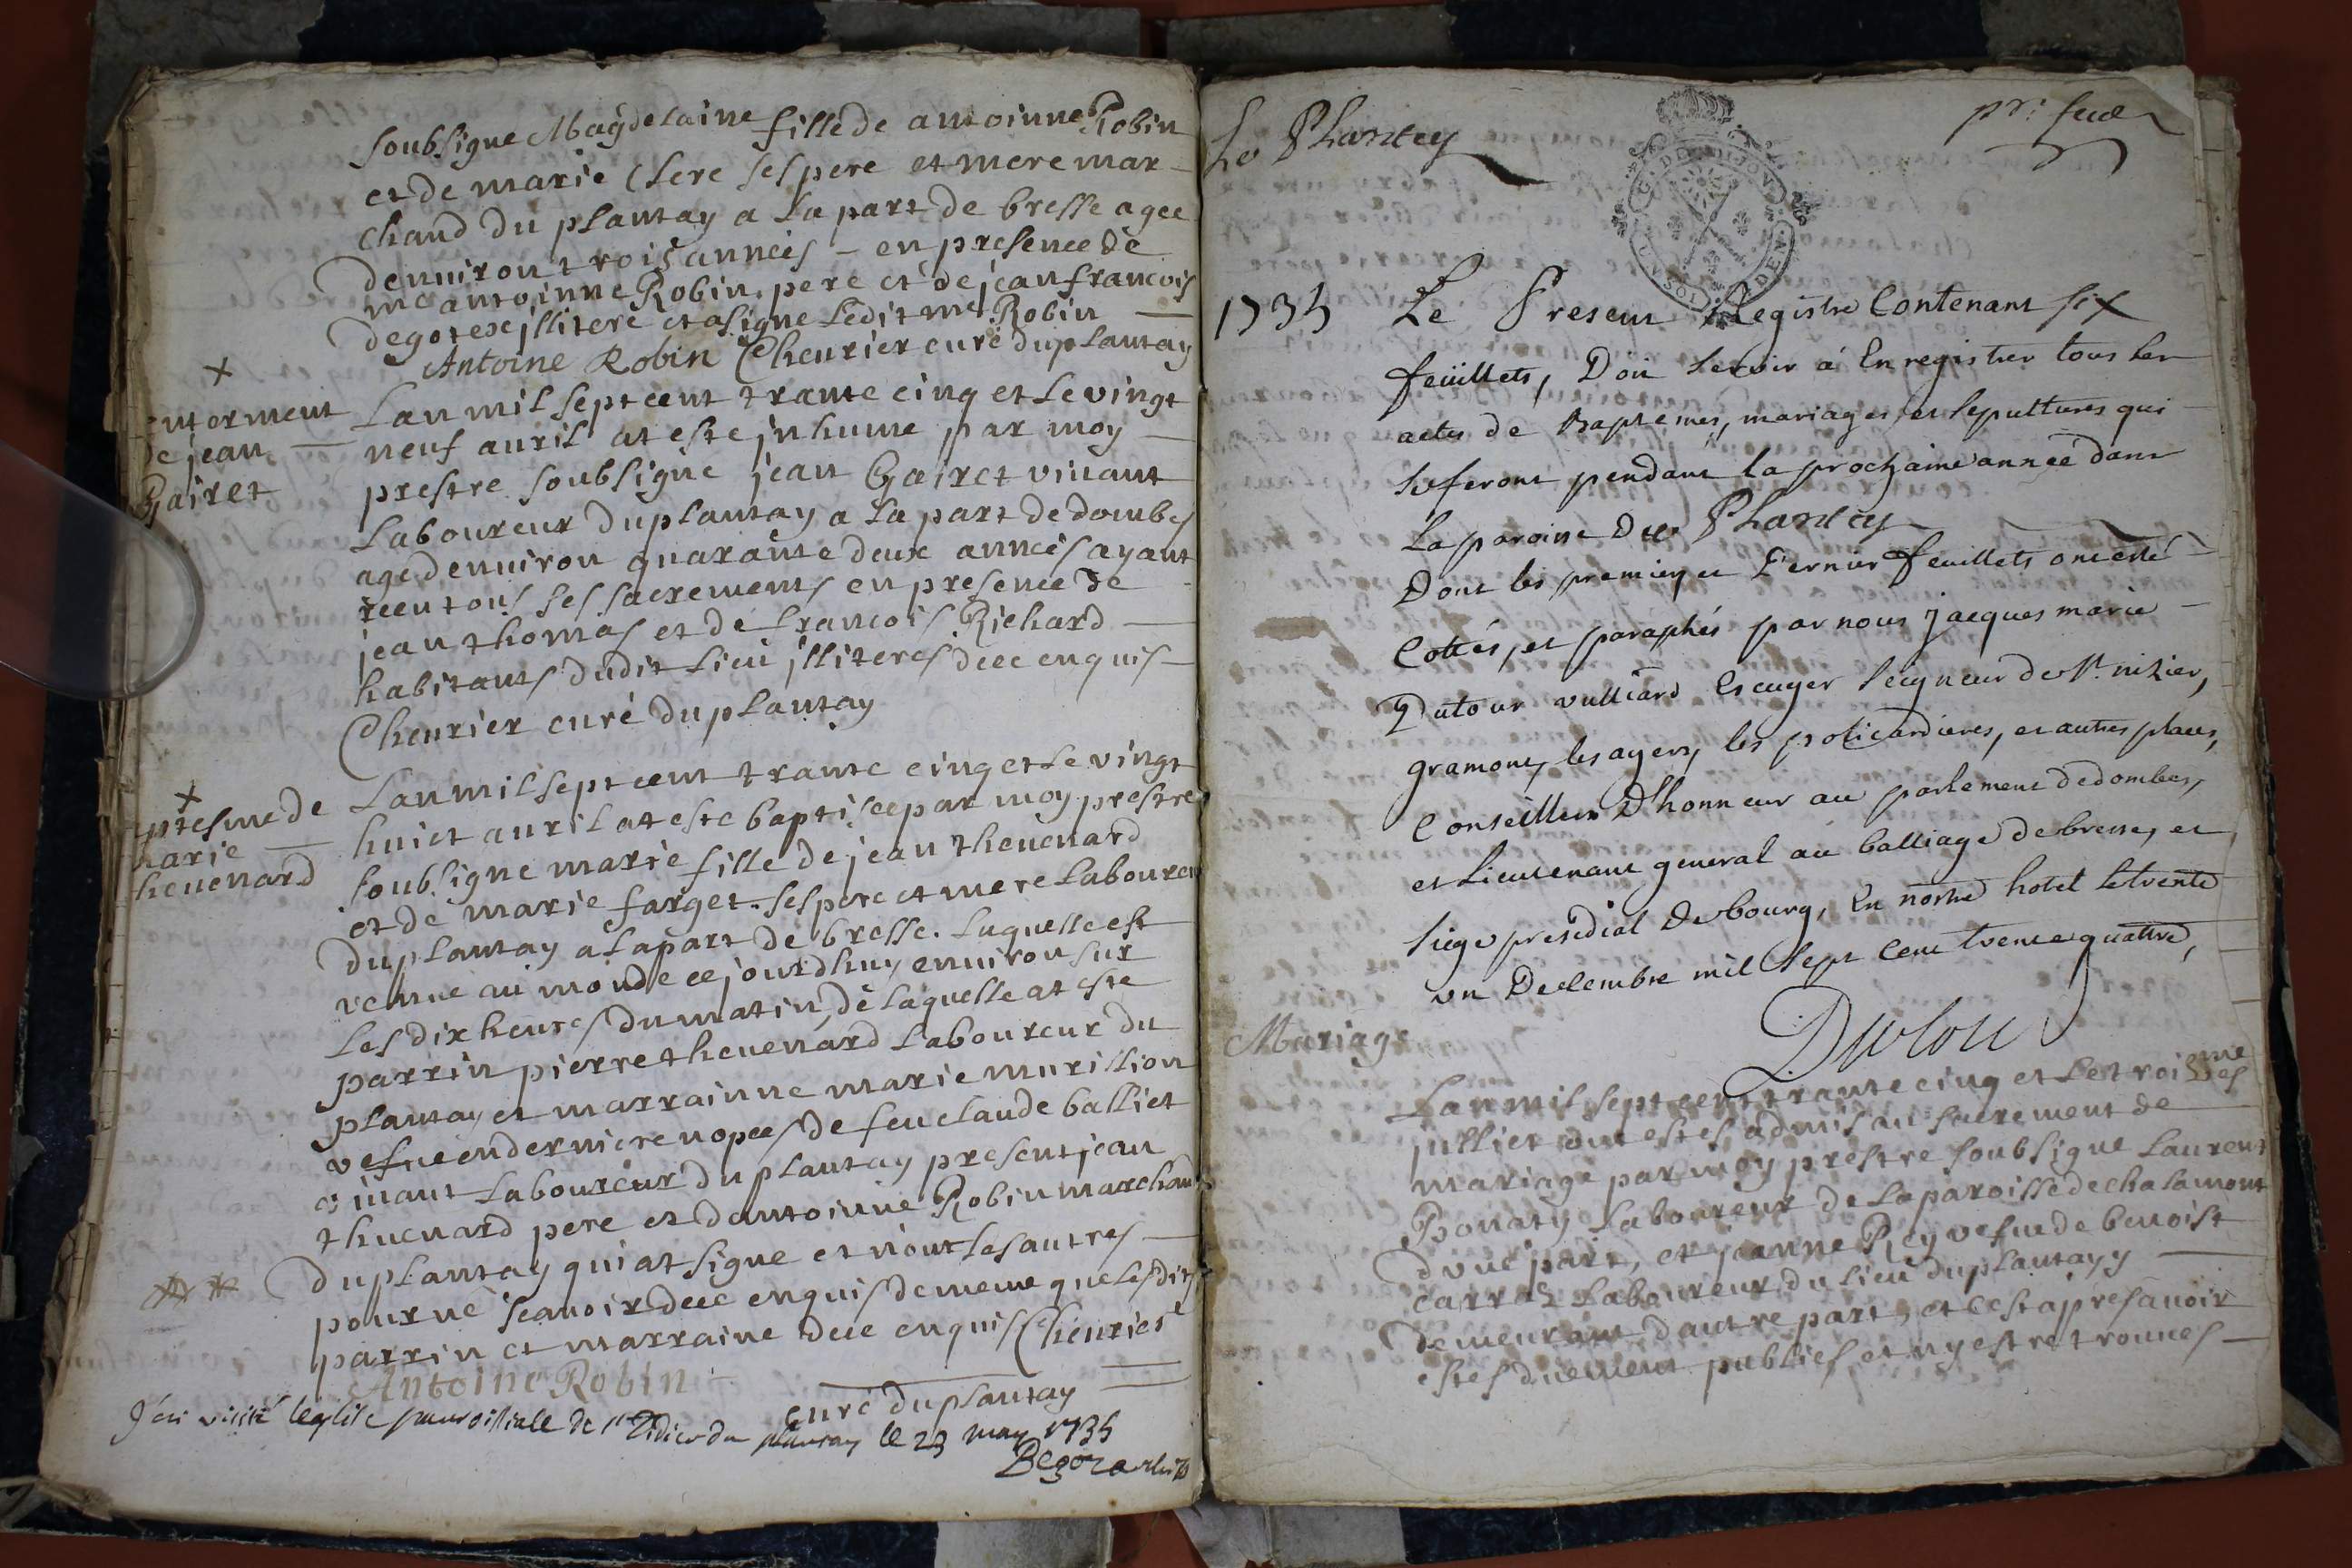 soubsigne Magdelaine fille de antoinne Robin
et de marie Clere ses pere et mere mar-
chand du plantay a la part de bresse agee
denuiron trois annees - en presence de
me antoinne Robin pere et de jean francois
degotex illitere et a signe ledit me Robin
Antoine Robin Cheurier curé du plantay
enterment
de jean
Gairet
Lan mil sept cent trante cinq et le vingt
neuf auril at este inhume par moy
prestre soubsigne jean Gairet viuant
Laboureur du plantay a la part de dombes
age denuiron quarante deux annees ayant
receu tous ses sacrements en presence de
jean thomas et de francois Richard
habitants dudit lieu illiteres de ce enquis
Cheurier curé du plantay
ptesme de
marie
heuenard
Lan mil sept cent trante cinq et le vingt
huict auril at este baptisee par moy prestre
soubsigne marie fille de jean theuenard
et de marie farget ses pere et mere laboureu
du plantay a la part de bresse. laquelle est
venue au monde ce jourdhuy enuiron sur
les dix heures du matin, de laquelle at este
parrin pierre theuenard laboureur du
plantay et marrainne marie murillion
vefue en derniere nopces de feu claude balliet
viuant laboureur du plantay present jean
thuenard pere et dantoinne Robin marchand
du plantay qui at signe et non les autres
pour ne scauoir de ce enquis de meme que lesdits
parrin et marraine de ce enquis Cheurier
Antoine Robin
curé du plantay
J'ai visité leglise parroissialle de st Didier du plantay le 23 may 1735
Le Plantey
pr: feuel
1735 Le Present Registre Contenant six
feüillets, Doit servir à Enregistrer tous les
actes de Baptemes, mariages, et sepultures qui
se feront pendant la prochaine année dans
La paroisse Du Plantey
Dont les premier et Dernier feuillets ont esté
Cottés, et paraphés par nous jacques marie
Dutour vulliard Escuyer seigneur de st. nizier,
gramont, les ayers, les policardieres, et autres places,
Conseiller D'honneur au parlement de dombes,
et Lieutenant general au balliage de bresse, et
siege presidial de bourg, En nostre hotel le trente
un Decembre mil sept cent trente quattre,
Mariage
Lan mil sept cent trante cinq et le troisieme
juilliet ont estes admis au sacrement de
mariage par moy prestre soubsigne Laurent
Bonaty laboureur de la paroisse de chalamont
dune part, et jeanne Rey vefue de benoist
carraz laboureur du lieu du plantay y
demeurant dautre part, et cest apres auoir
estes duement publies et ny estre trouues